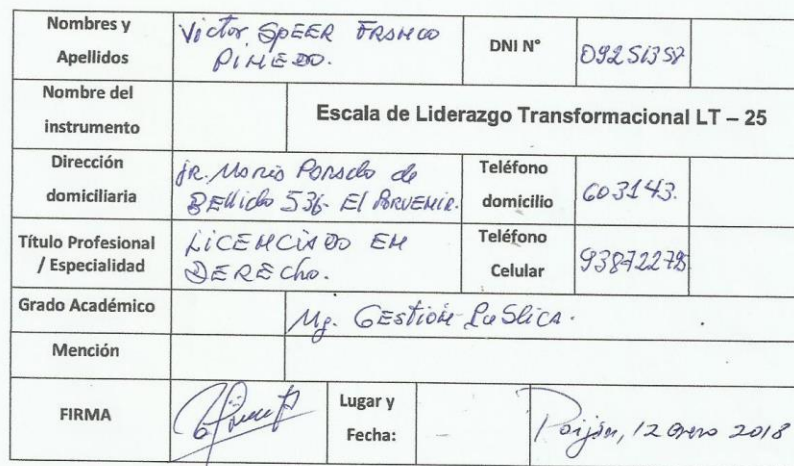 Nombres y Apellidos
Victor SPEER FRANCO PINEDO.
DNI N°
Nombre del instrumento
Escala de Liderazgo Transformacional LT – 25
Dirección domiciliaria
JR. Maria Parado de BELLido 536- El PORVENIR.
Teléfono domicilio
603143.
Título Profesional / Especialidad
LICENCIADO EN DERECho.
Teléfono Celular
Grado Académico
Mg. GEstión Publica.
Mención
FIRMA
Lugar y Fecha:
Paiján, 12 enero 2018